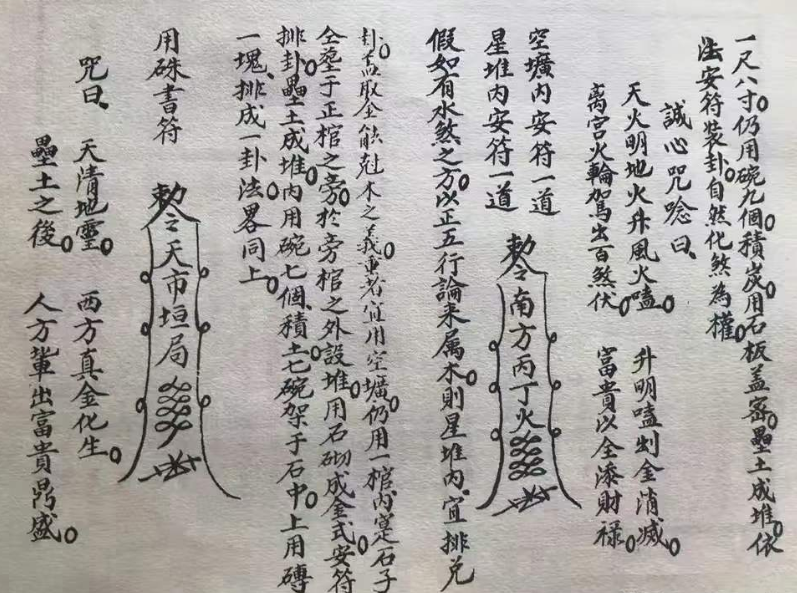 一尺八寸。仍用碗九個。積炭用石板盖密。壘土成堆。依
法安符裝卦。自然化煞為權。
誠心咒唸曰、
天火明地火升風火嗑。 升明嗑剋金消滅。
离宫火輪駕出百煞伏。 富貴以全添財祿。
空壙内安符一道
星堆内安符一道
敕令南方丙丁火
假如有水煞之方。以正五行論来属木。則星堆内宜排兑
卦。盖取金能尅木之義。重者宜用空壙。仍用一棺。内寔石子
仝塟于正棺之旁。於旁棺之外設堆。用石砌成金式。安符
排卦。壘土成堆。内用碗七個。積土七碗架于石中。上用磚
一塊。排成一卦。法畧同上。
用硃書符
敕令天市垣局
咒曰、 天清地靈。 西方真金化生。
壘土之後。 人方輩出富貴鼎盛。